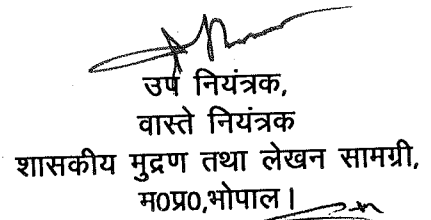 उप नियंत्रक,
वास्ते नियंत्रक
शासकीय मुद्रण तथा लेखन सामग्री,
म0प्र0,भोपाल।